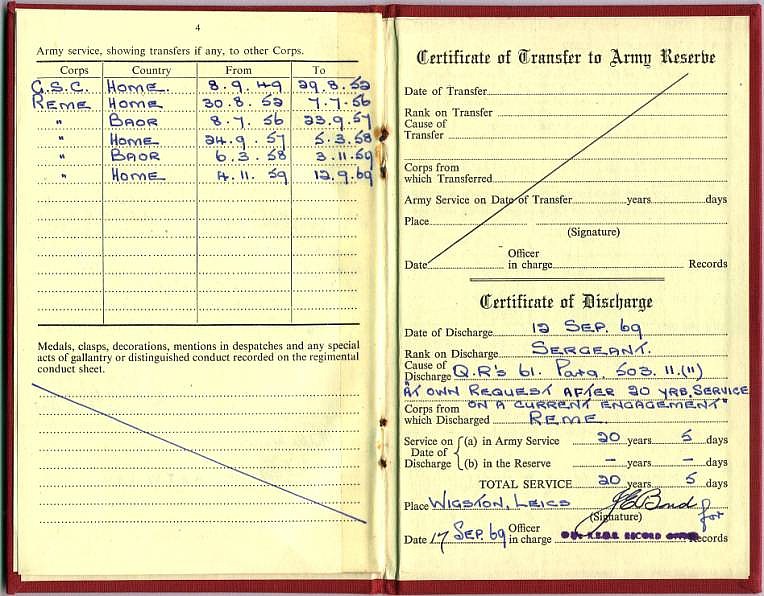 4
Army service, showing transfers if any, to other Corps.
Corps Country From To
G.S.C. HOME. 8.9.49 29.8.52
REME HOME 30.8.52 7.7.56
" BAOR 8.7.56 23.9.57
" HOME 24.9.57 5.3.58
" BAOR 6.3.58 3.11.59
" HOME 4.11.59 12.9.69
Medals, clasps, decorations, mentions in despatches and any special
acts of gallantry or distinguished conduct recorded on the regimental
conduct sheet.
Certificate of Transfer to Army Reserve
Date of Transfer
Rank on Transfer
Cause of
Transfer
Corps from
which Transferred
Army Service on Date of Transfer years days
Place
(Signature)
Officer
Date in charge Records
Certificate of Discharge
Date of Discharge 12 SEP. 69
Rank on Discharge SERGEANT.
Cause of
Discharge Q.R's 61. Para 503. 11.(11)
"AT OWN REQUEST AFTER 20 YRS, SERVICE
Corps from ON A CURRENT ENGAGEMENT"
which Discharged REME.
Service on (a) in Army Service 20 years 5 days
Date of
Discharge (b) in the Reserve – years – days
TOTAL SERVICE 20 years 5 days
Place WIGSTON, LEICS
(Signature) for
Officer
Date 17 SEP. 69 in charge RECORD OFFICE Records